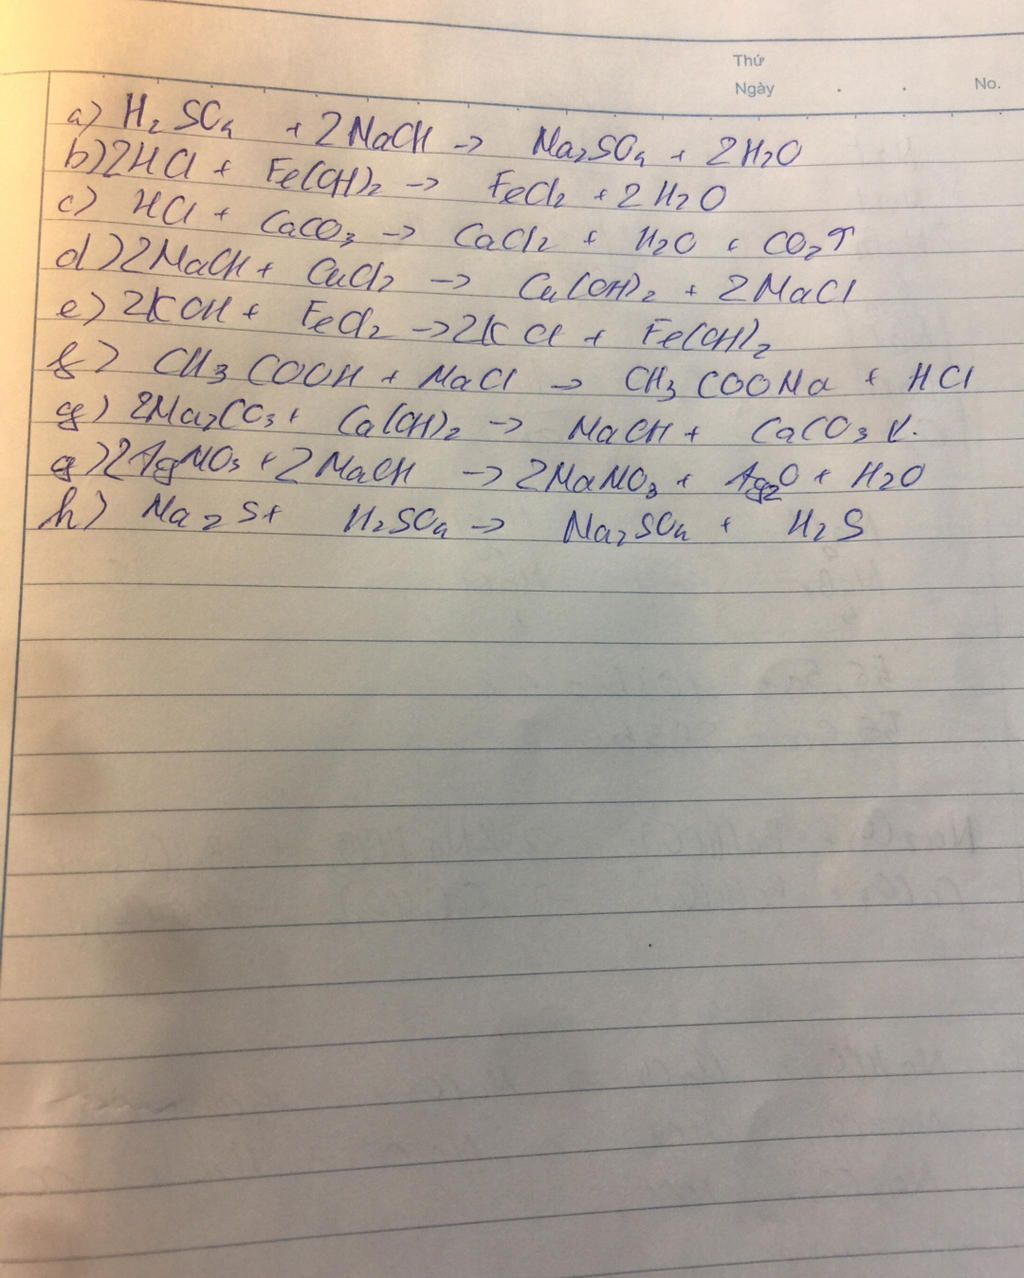 Thứ
Ngày . . No.
a) H₂SO₄ + 2NaOH -> Na₂SO₄ + 2H₂O
b) 2HCl + Fe(OH)₂ -> FeCl₂ + 2H₂O
c) HCl + CaCO₃ -> CaCl₂ + H₂O + CO₂↑
d) 2NaOH + CuCl₂ -> Cu(OH)₂ + 2NaCl
e) 2KOH + FeCl₂ -> 2KCl + Fe(OH)₂
f) CH₃COOH + NaCl -> CH₃COONa + HCl
g) 2Na₂CO₃ + Ca(OH)₂ -> NaOH + CaCO₃↓.
g) 2AgNO₃ + 2NaOH -> 2NaNO₃ + Ag₂O + H₂O
h) Na₂S + H₂SO₄ -> Na₂SO₄ + H₂S